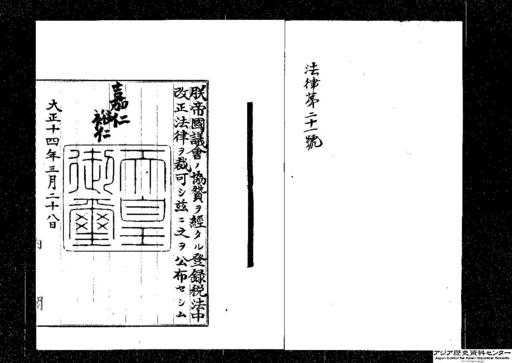 法律第二十一號
朕帝國議會ノ協贊ヲ經タル登録税法中
改正法律ヲ裁可シ茲ニ之ヲ公布セシム
嘉仁
裕仁
天皇御璽
大正十四年三月二十八日
アジア歴史資料センター
Japan Center for Asian Historical Records